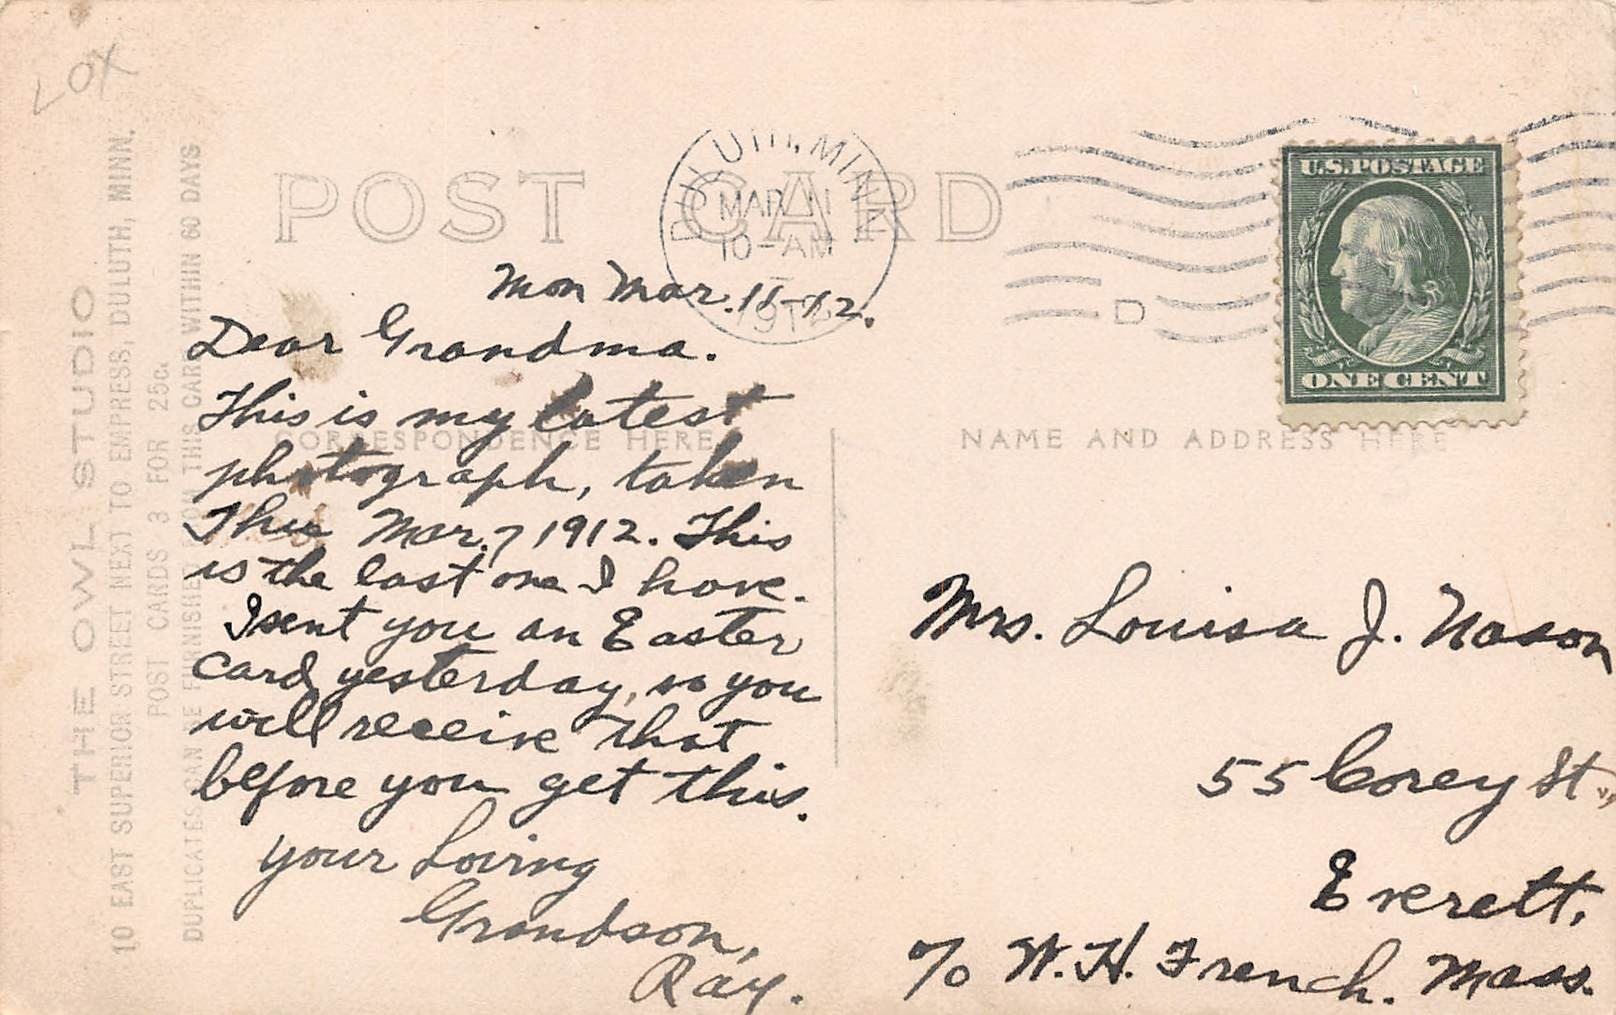 LOX
THE OWL STUDIO
10 EAST SUPERIOR STREET NEXT TO EMPRESS, DULUTH, MINN.
POST CARDS 3 FOR 25c.
DUPLICATES CAN BE FURNISHED FROM THIS CARD WITHIN 60 DAYS
POST CARD
DULUTH, MINN.
MAR 11
10-AM
1912
D
U.S. POSTAGE
ONE CENT
CORRESPONDENCE HERE
NAME AND ADDRESS HERE
Mon Mar. 11-12.
Dear Grandma.
This is my latest
photograph, taken
Thur Mar. 7 1912. This
is the last one I have.
I sent you an Easter
card yesterday, so you
will receive that
before you get this.
Your Loving
Grandson,
Ray.
Mrs. Louisa J. Nason
55 Corey St.,
Everett,
c/o W. H. French. Mass.